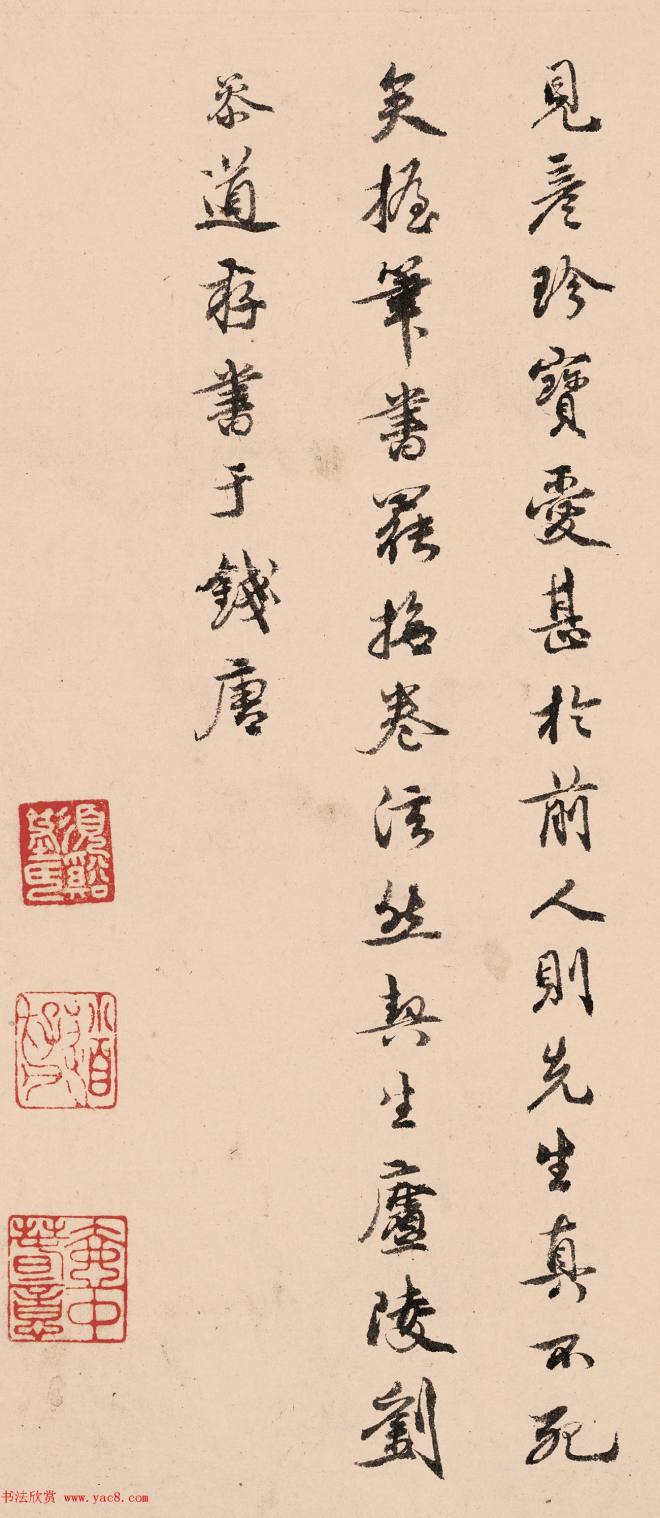 見彥珍寶愛甚於前人則先生真不死
矣握筆書罷撫卷泫然契生廬陵劉
恭道存書于錢唐
须谿
书法欣赏 www.yac8.com